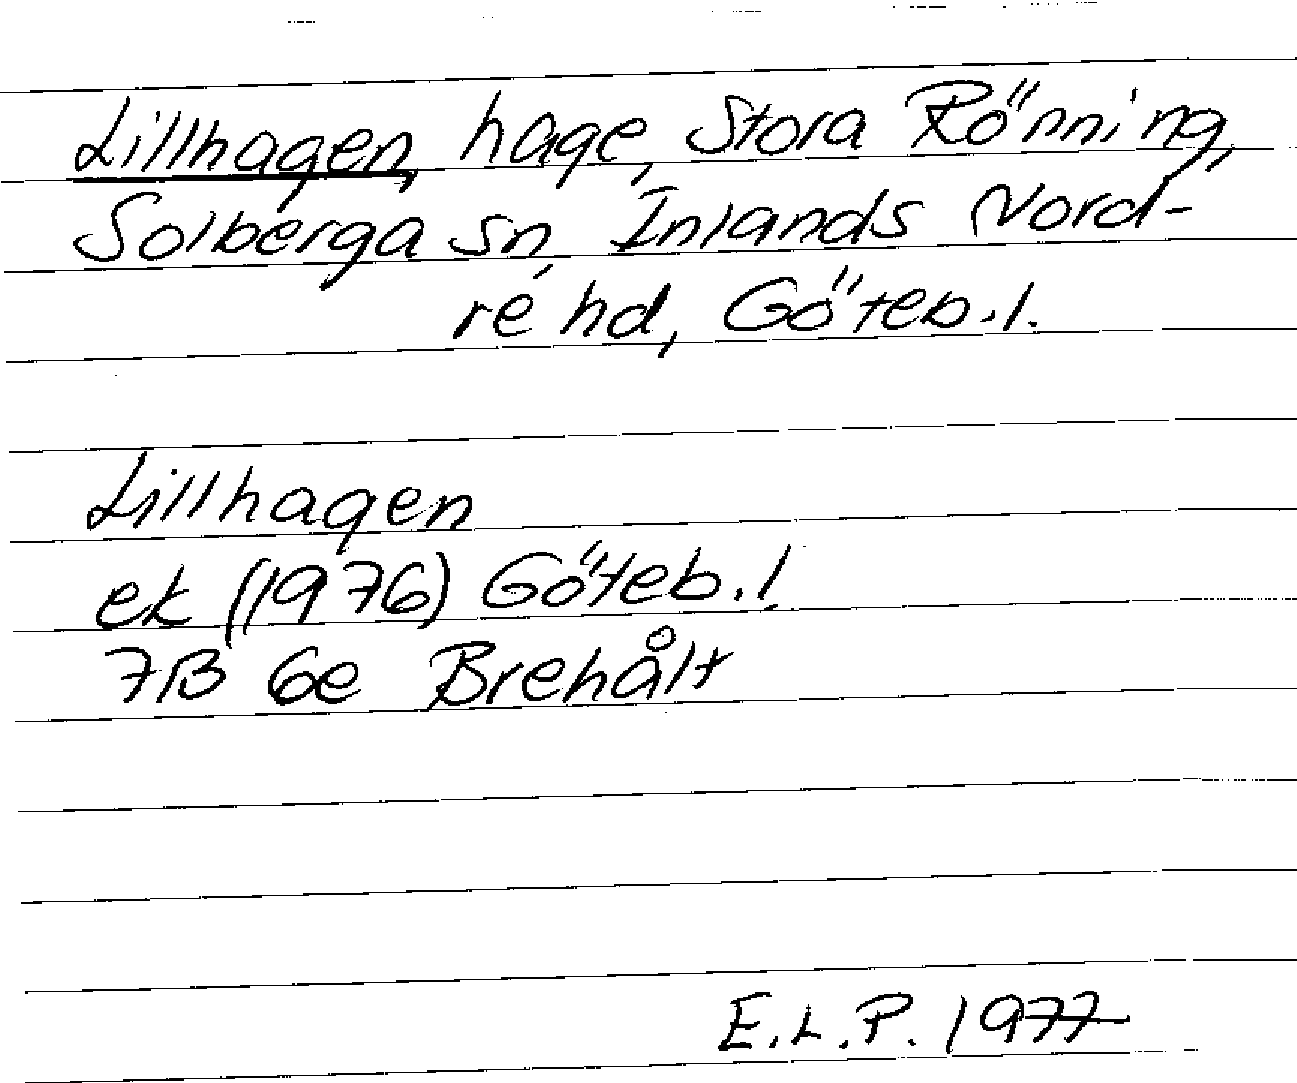 Lillhagen, hage, Stora Rönning,
Solberga sn, Inlands Nord-
re hd, Göteb.l.
Lillhagen
ek (1976) Göteb.l.
7B 6e Brehålt
E.L.P. 1977